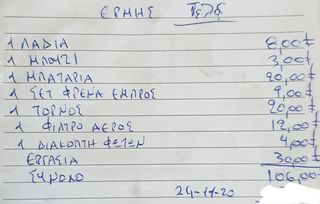 ΕΡΜΗΣ
1 ΛΑΔΙΑ 8,00€
1 ΜΠΟΥΖΙ 3,00€
1 ΜΠΑΤΑΡΙΑ 20,00€
1 ΣΕΤ ΦΡΕΝΑ ΕΜΠΡΟΣ 9,00€
1 ΤΟΡΝΟΣ 20,00€
1 ΦΙΛΤΡΟ ΑΕΡΟΣ 12,00€
1 ΔΙΑΚΟΠΤΗ ΦΩΤΩΝ 4,00€
ΕΡΓΑΣΙΑ 30,00€
ΣΥΝΟΛΟ 106,00€
24-11-20